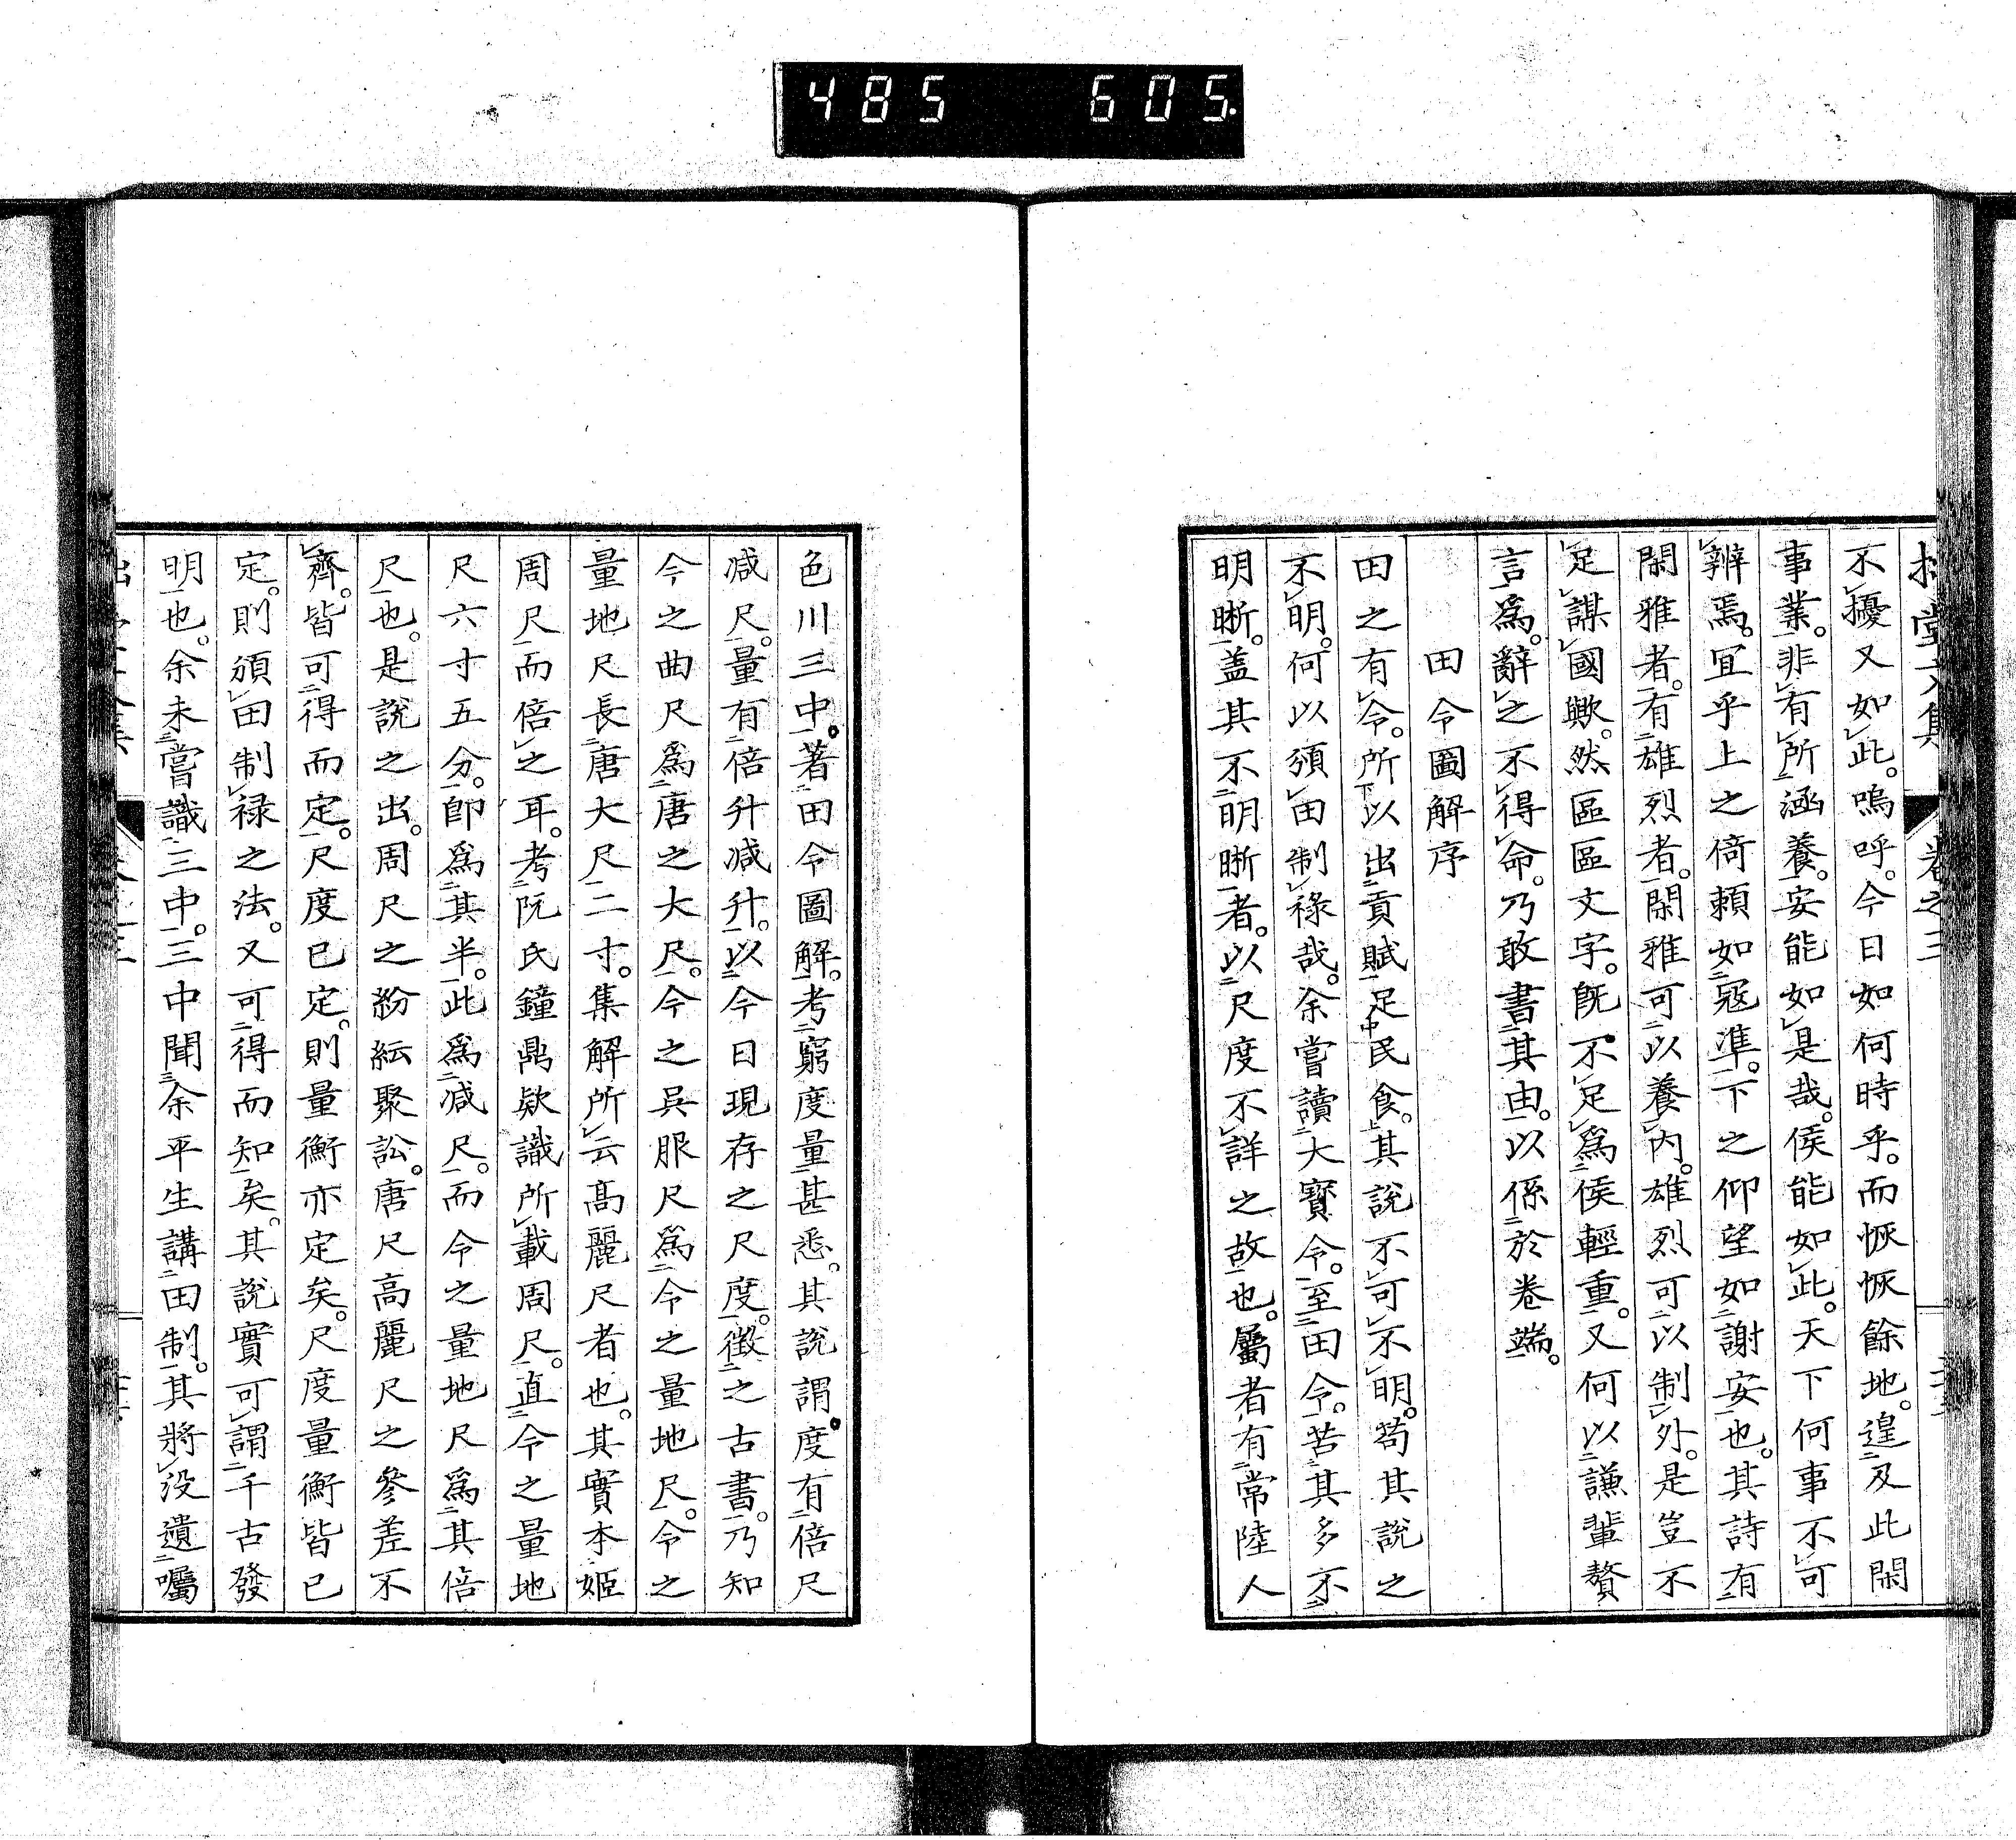 485 605.
堂文集 卷之三
不擾又如此。嗚呼。今日如何時乎。而恢恢餘地。遑及此閑
事業。非有所涵養。安能如是哉。侯能如此。天下何事不可
辨焉。冝乎上之倚頼如寇準。下之仰望如謝安也。其詩有
閑雅者。有雄烈者。閑雅可以養内。雄烈可以制外。是豈不
足謀國歟。然區區文字。既不足爲侯輕重。又何以謙輩贅
言爲。辭之不得命。乃敢書其由。以係於卷端。
田令圖解序
田之有令。所以出貢賦足民食。其說不可不明。苟其說之
不明。何以頒田制祿哉。余嘗讀大寳令。至田令。苦其多不
明晣。盖其不明晣者。以尺度不詳之故也。屬者有常陸人
色川三中。著田令圖解。考窮度量甚悉。其說謂度有倍尺
減尺。量有倍升減升。以今日現存之尺度。徴之古書。乃知
今之曲尺爲唐之大尺。今之呉服尺爲今之量地尺。今之
量地尺長唐大尺二寸。集解所云高麗尺者也。其實本姬
周尺而倍之耳。考阮氏鐘鼎欵識所載周尺。直今之量地
尺六寸五分。卽爲其半。此爲減尺。而今之量地尺爲其倍
尺也。是說之出。周尺之紛紜聚訟。唐尺高麗尺之參差不
齊。皆可得而定。尺度已定。則量衡亦定矣。尺度量衡皆已
定。則頒田制禄之法。又可得而知矣。其說實可謂千古發
明也。余未嘗識三中。三中聞余平生講田制。其將没遺囑